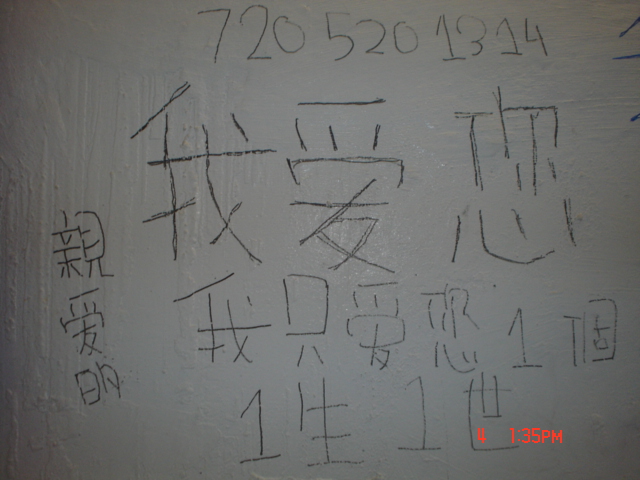 720 520 1314
我爱您
親爱的
我只爱您1個
1生1世
4 1:35PM